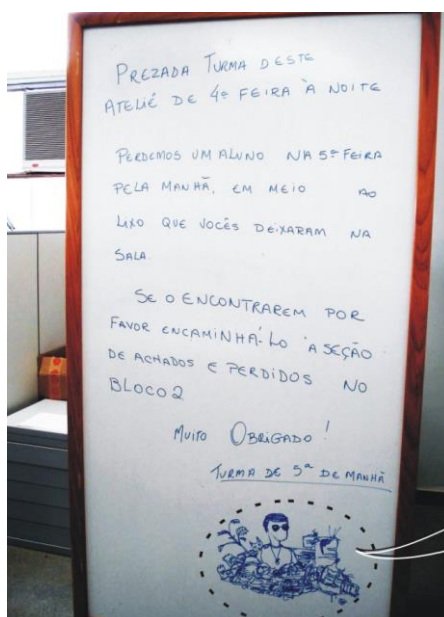 PREZADA TURMA DESTE
ATELIÊ DE 4ª FEIRA À NOITE
PERDEMOS UM ALUNO NA 5ª FEIRA
PELA MANHÃ, EM MEIO AO
LIXO QUE VOCÊS DEIXARAM NA
SALA.
SE O ENCONTRAREM POR
FAVOR ENCAMINHÁ-LO À SEÇÃO
DE ACHADOS E PERDIDOS NO
BLOCO 2
MUITO OBRIGADO!
TURMA DE 5ª DE MANHÃ